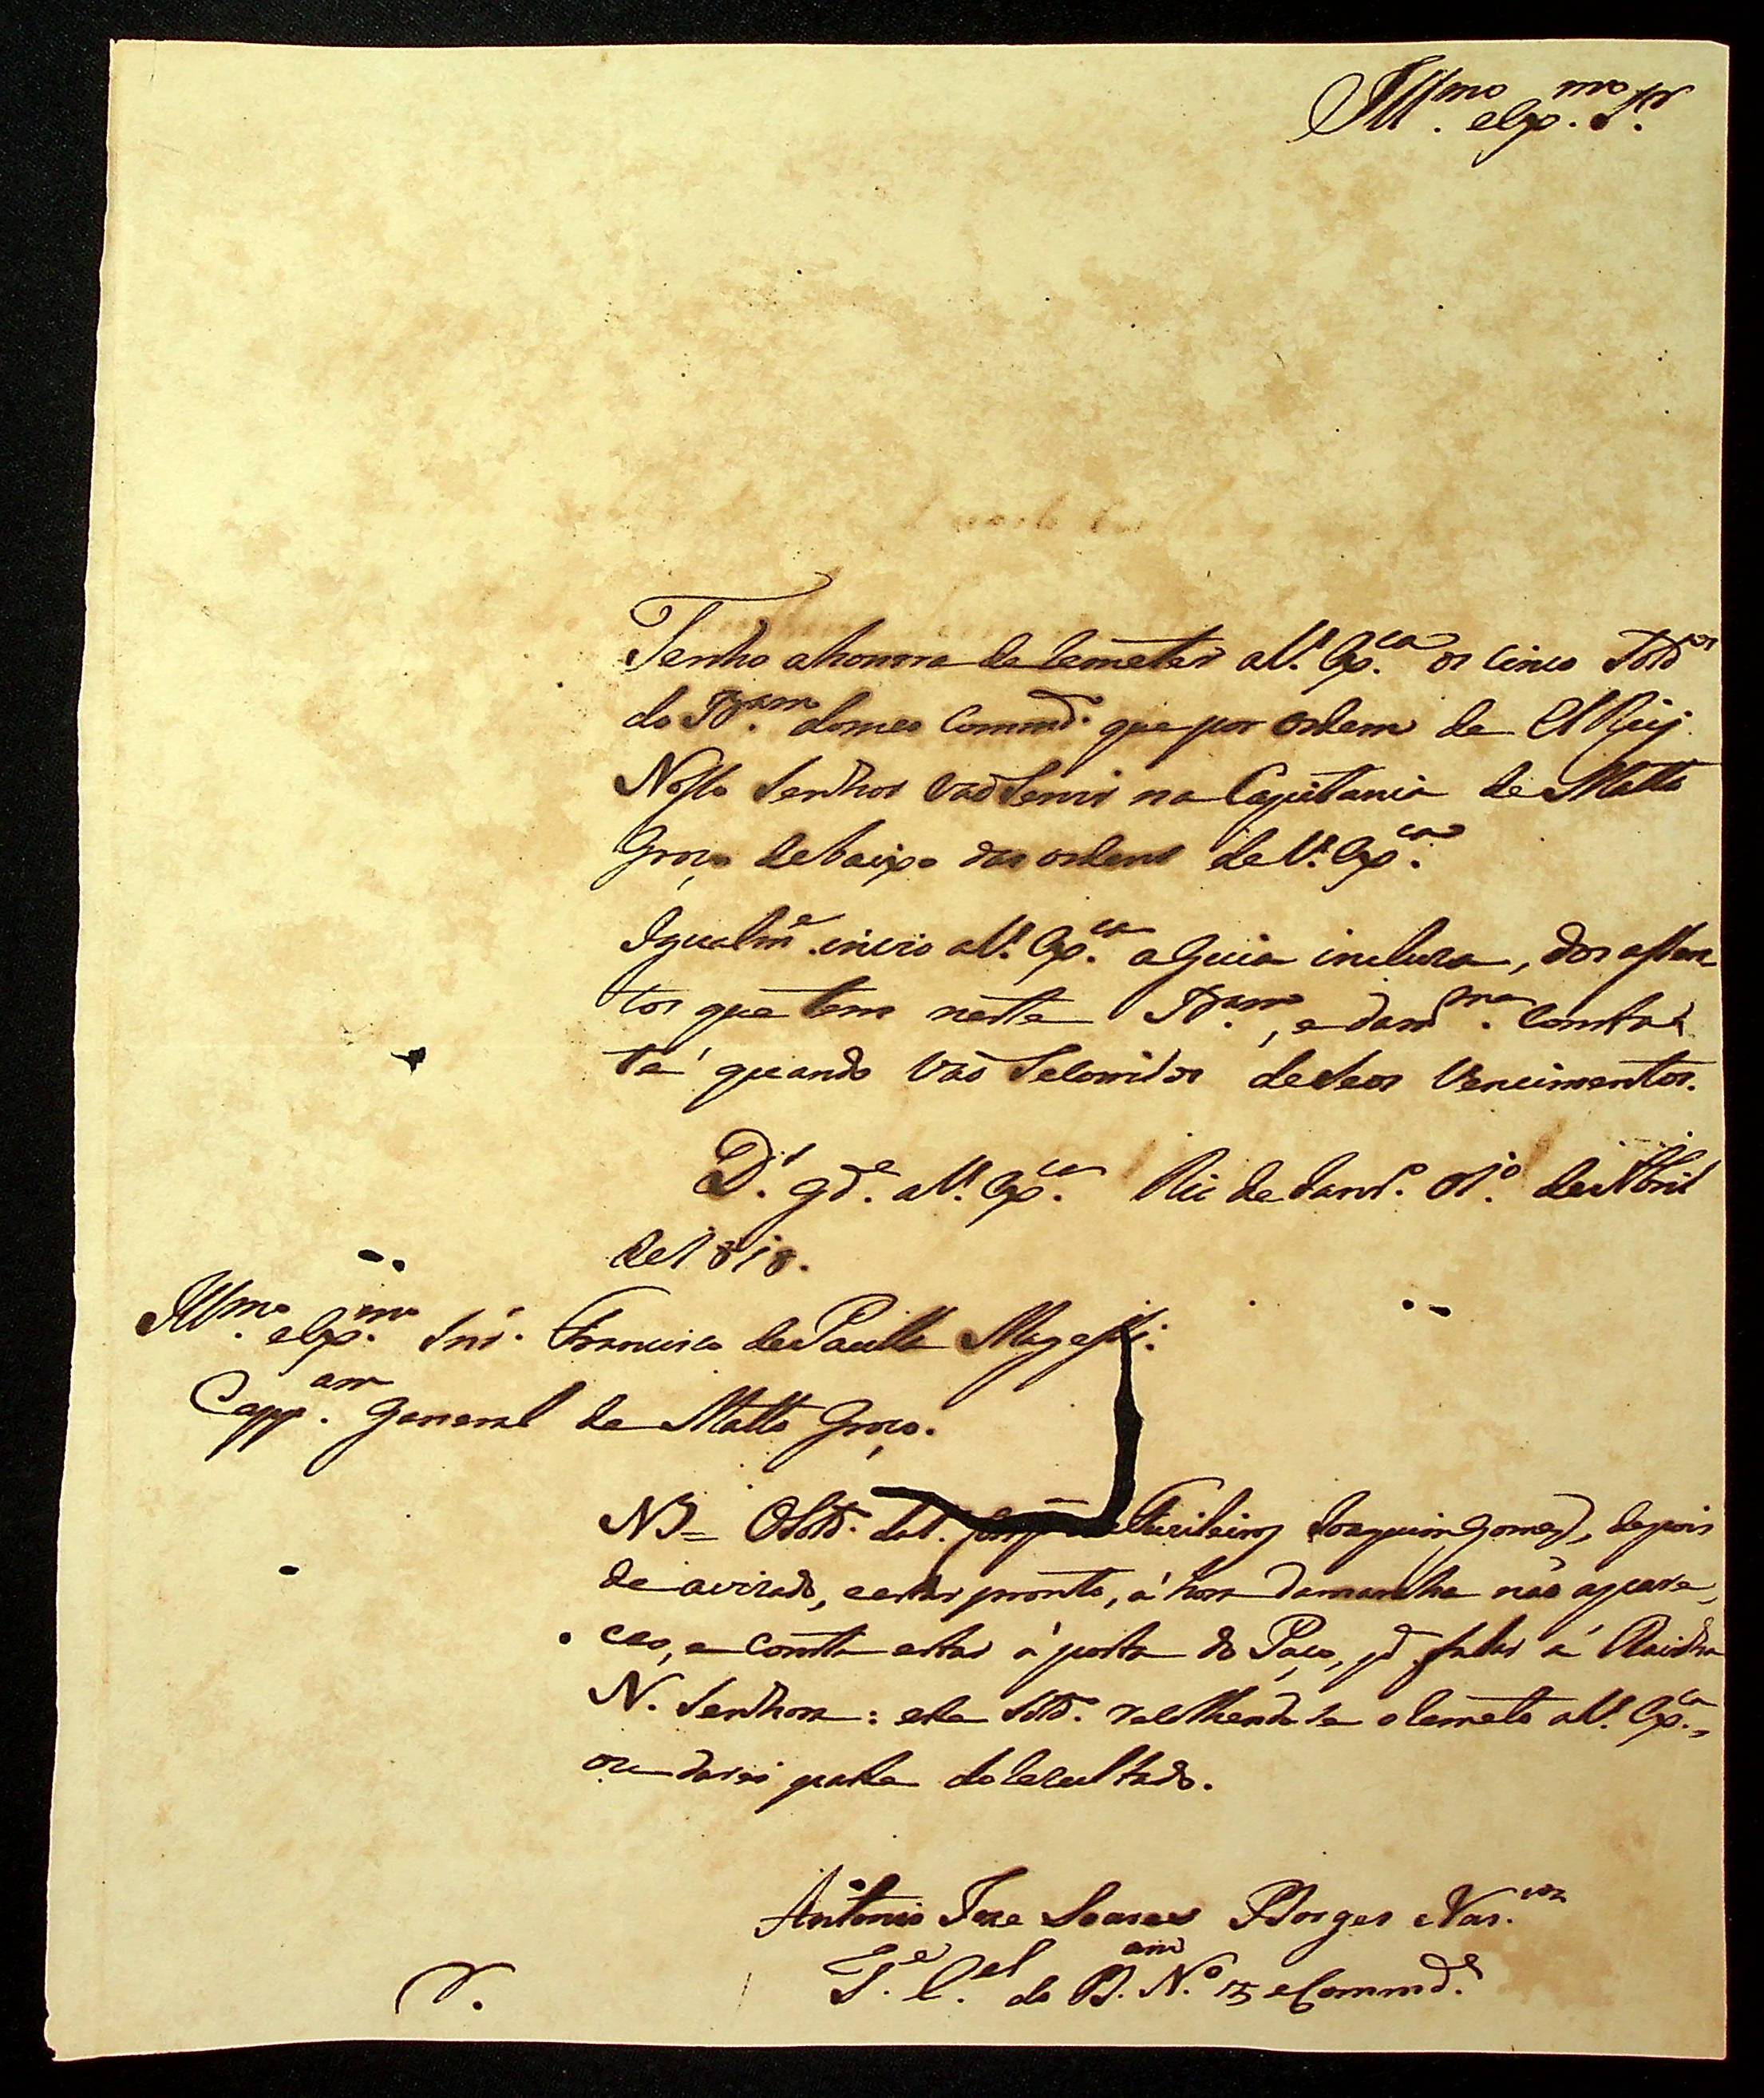 Ill.mo e Ex.mo Sr.
Tenho a honrra de Remeter a V. Ex.ca os cinco Sold.os
do B.am do meo Command. que por ordem de El Rey
Nosso Senhor vaõ Servir na Capitania de Matto
Groço debaixo das ordens de V. Ex.ca
Igualm.e invio a V. Ex.ca a Guia incluza, dos assen
tos que tem neste B.am, e da m.ma Consta
té quando vaõ Socorridos de Seos Vencimentos.
D.s g.de a V. Ex.ca Rio de Janr.o de Abril
de 1818.
Ill.mo e Ex.mo Snr. Francisco de Paulla Magessi.
Capp.am General de Matto Groço.
NB = O Sold. da Joaquim Gomes, depois
de avizado, e estar pronto, á hora da marcha não apare
ceo, e consta estar á porta do Paço, p.a falar á Rainha
N. Senhora: este Sold. recolhendo se o Remeto a V. Ex.ca,
ou darei parte do Rezultado.
Antonio Joze Soares Borges Vas.cos
T.e C.el do B.am N.o 15 e Command.e